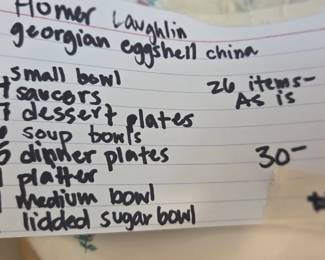 Homer Laughlin
georgian eggshell china
small bowl
saucers
7 dessert plates
soup bowls
dinner plates
platter
medium bowl
lidded sugar bowl
26 items-
As is
30-